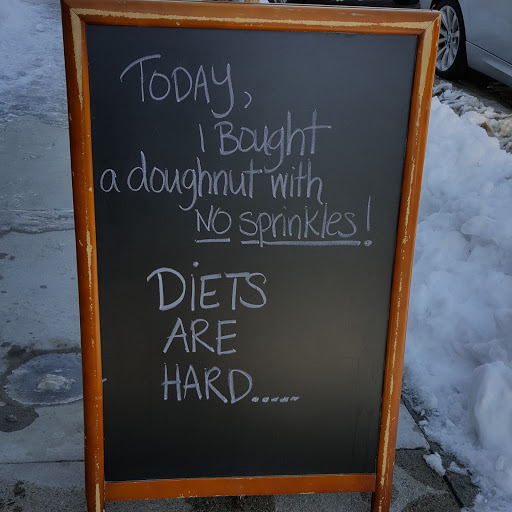 TODAY,
I Bought
a doughnut with
NO sprinkles!
DiETS
ARE
HARD.....